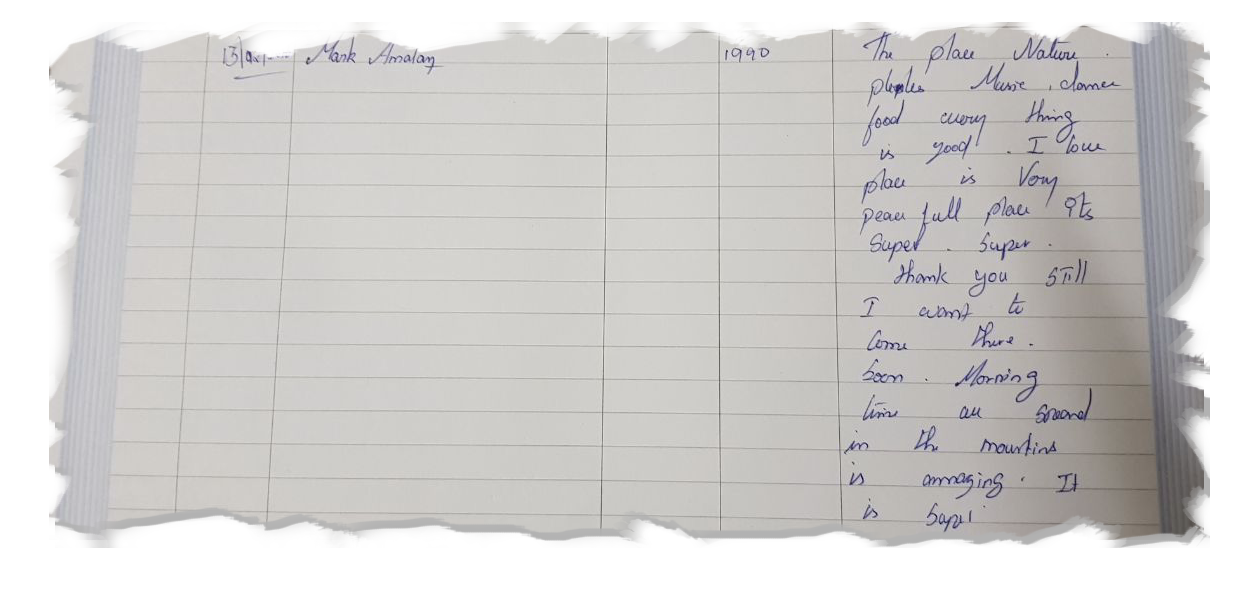 Mark Amalan 1990 The place Nature.
Music, dance
food every thing
is good. I love
place is Very
peace full place Its
Super. Super.
thank you still
I want to
Come there.
Soon. Morning
time all sound
in the mountins
is amaging. It
is Super